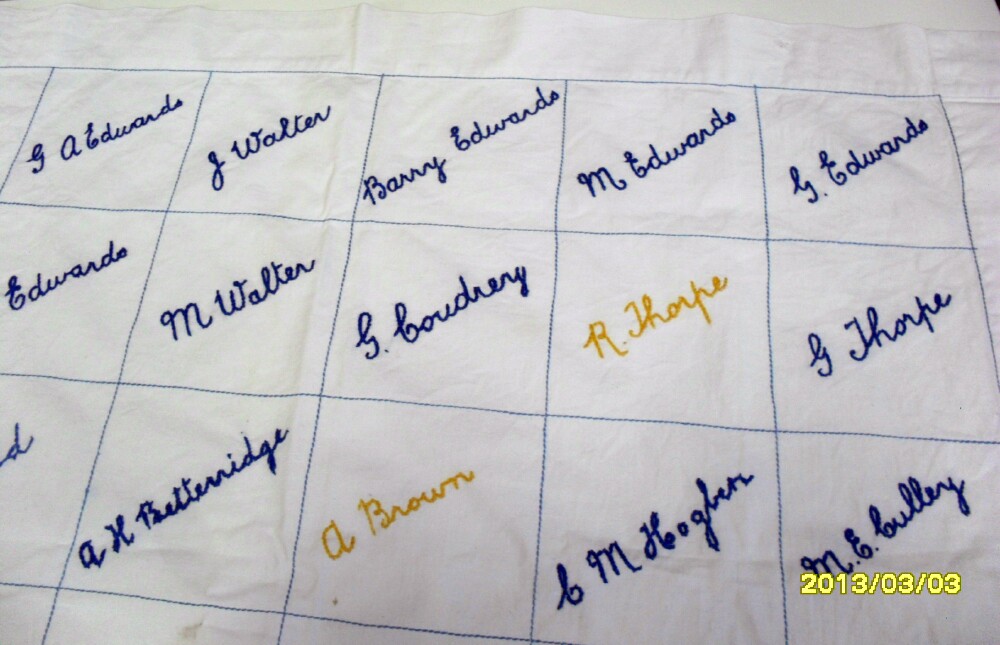 G A Edwards J Walter Barry Edwards M Edwards G. Edwards
Edwards M Walter G. Coudrery R. Thorpe G Thorpe
d A H Betterridge A Brown C M Hogben M. E. Culley
2013/03/03